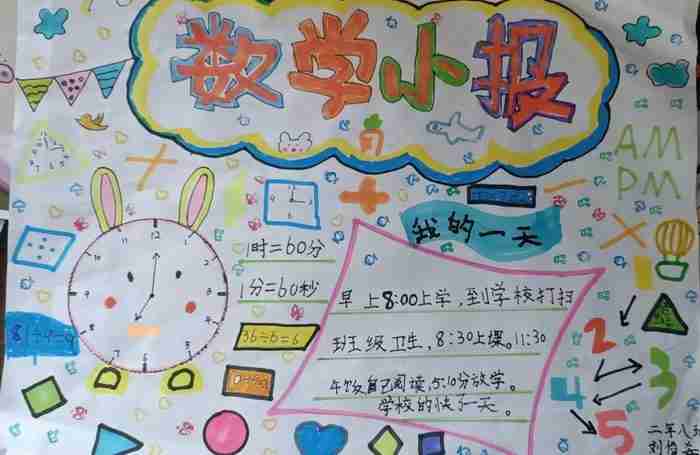 数学小报
AM
PM
我的一天
1时=60分
1分=60秒
36÷6=6
早上8:00上学,到学校打扫
班级卫生,8:30上课。11:30
午饭自己阅读,5:10分放学。
学校的快了一天。
12
11
1
10
2
9
3
8
4
7
5
6
2
3
4
5
二年八班